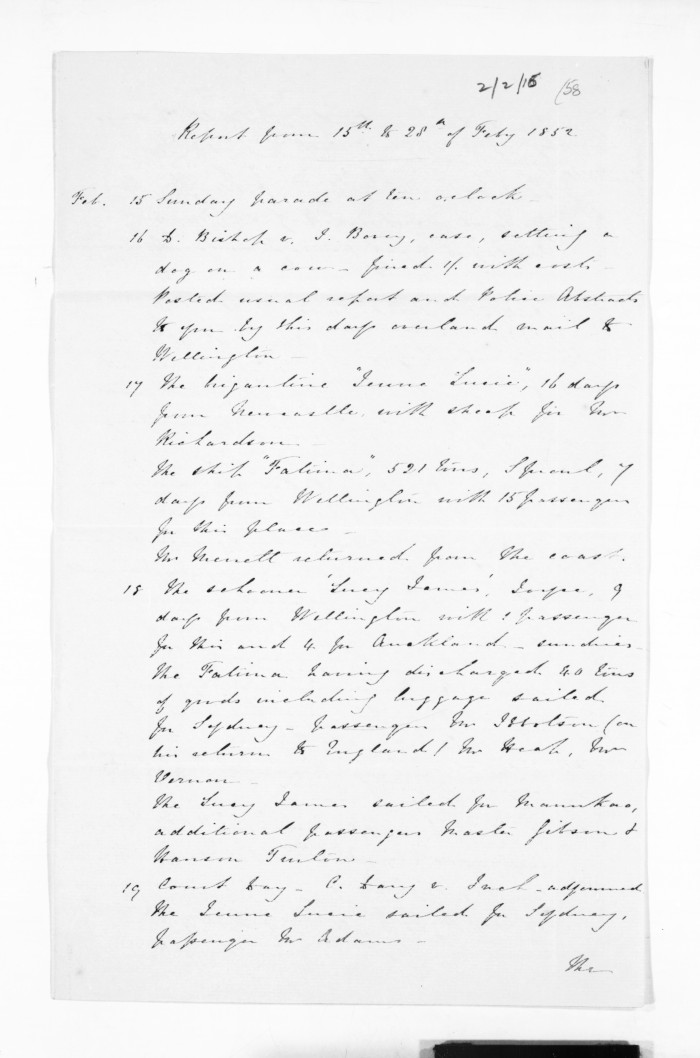 2/2/16 158
Report from 15th to 28th of Feby 1852
Feb. 15 Sunday parade at ten o.clock
16 D. Bishop v. J. , case, setting a
dog on a cow - fined 1/. with costs -
Posted usual report and Police Abstracts
to you by this days overland mail to
Wellington -
17 The brigantine "Jenne Lucie", 16 days
from Newcastle with sheep for Mr
Richardson -
The ship "Fatima", 521 tons, Sproul, 7
days from Wellington with 15 passengers
for this place -
Mr Merrett returned from the coast.
18 The schooner 'Lucy James', , 9
days from Wellington with 1 passenger
for this and 4 for Auckland - sundries -
The Fatima having discharged 40 tons
of goods including luggage sailed
for Sydney - passengers Mr Ibbotson (on
his return to England) Mr , Mr
Vernon -
The Lucy James sailed for Manukao,
additional passengers Master Gibson &
Hanson Turton -
19 Court day - C. v. - adjourned
The Jenne Lucie sailed for Sydney,
passenger Mr Adams -
The